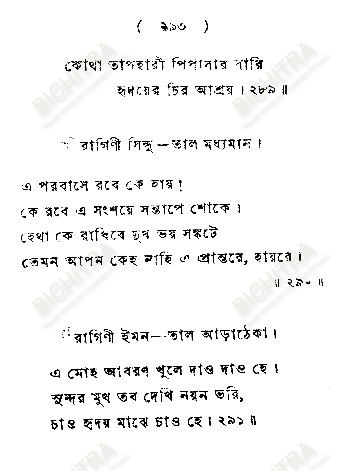 ( ২৯৩ )
কোথা তাপহারী পিপাসার বারি
হৃদয়ের চির আশ্রয়। ২৮৯॥
রাগিণী সিন্ধু—তাল মধ্যমান।
এ পরবাসে রবে কে হায়!
কে রবে এ সংশয়ে সন্তাপে শোকে।
হেথা কে রাখিবে দুখ ভয় সঙ্কটে
তেমন আপন কেহ নাহি এ প্রান্তরে, হায়রে।
॥ ২৯০॥
রাগিণী ইমন—তাল আড়াঠেকা।
এ মোহ আবরণ খুলে দাও দাও হে।
সুন্দর মুখ তব দেখি নয়ন ভরি,
চাও হৃদয় মাঝে চাও হে। ২৯১॥
BICHITRA